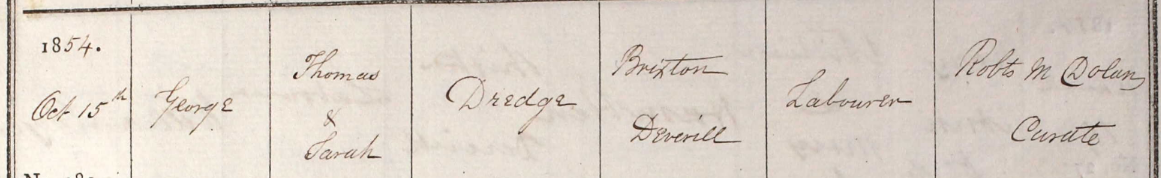 1854.
Oct 15th
George
Thomas
&
Sarah
Dredge
Brixton
Deverill
Labourer
Robts M Dolan
Curate